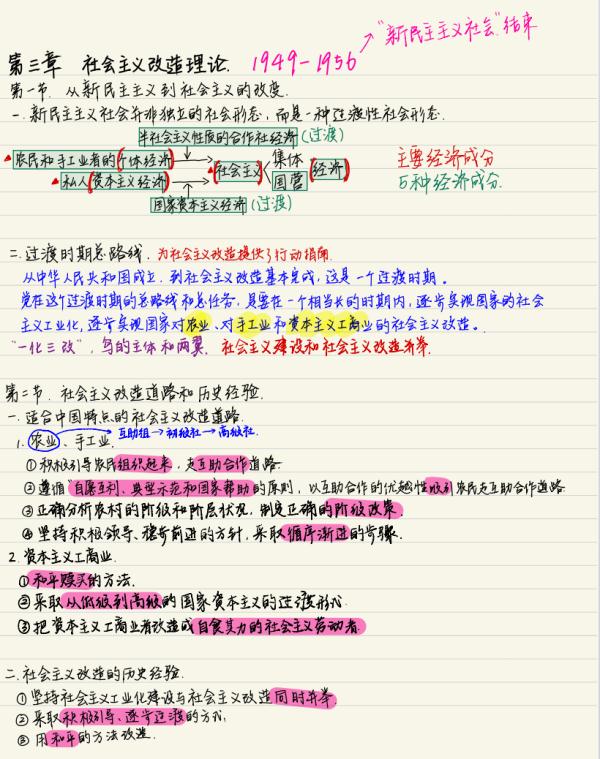 "新民主主义社会"结束
第三章 社会主义改造理论. 1949-1956
第一节. 从新民主主义到社会主义的改变.
一. 新民主主义社会并非独立的社会形态, 而是一种过渡性社会形态.
半社会主义性质的合作社经济(过渡)
农民和手工业者的(个体经济) (社会主义) 集体 (经济) 主要经济成分
私人(资本主义经济) 国营 5种经济成分.
国家资本主义经济(过渡)
二. 过渡时期总路线, 为社会主义改造提供了行动指南.
从中华人民共和国成立, 到社会主义改造基本完成, 这是一个过渡时期。
党在这个过渡时期的总路线和总任务, 是要在一个相当长的时期内, 逐步实现国家的社会
主义工业化, 逐步实现国家对农业、对手工业和资本主义工商业的社会主义改造。
"一化三改", 鸟的主体和两翼. 社会主义建设和社会主义改造并举.
第二节. 社会主义改造道路和历史经验.
一. 适合中国特点的社会主义改造道路.
1. 农业、手工业. 互助组→初级社→高级社.
①积极引导农民组织起来, 走互助合作道路.
②遵循"自愿互利、典型示范和国家帮助的原则, 以互助合作的优越性吸引农民走互助合作道路.
③正确分析农村的阶级和阶层状况, 制定正确的阶级政策.
④坚持积极领导、稳步前进的方针, 采取循序渐进的步骤.
2. 资本主义工商业.
①和平赎买的方法.
②采取从低级到高级的国家资本主义的过渡形式.
③把资本主义工商业者改造成自食其力的社会主义劳动者.
二. 社会主义改造的历史经验.
①坚持社会主义工业化建设与社会主义改造同时并举.
②采取积极引导、逐步过渡的方式.
③用和平的方法改造.